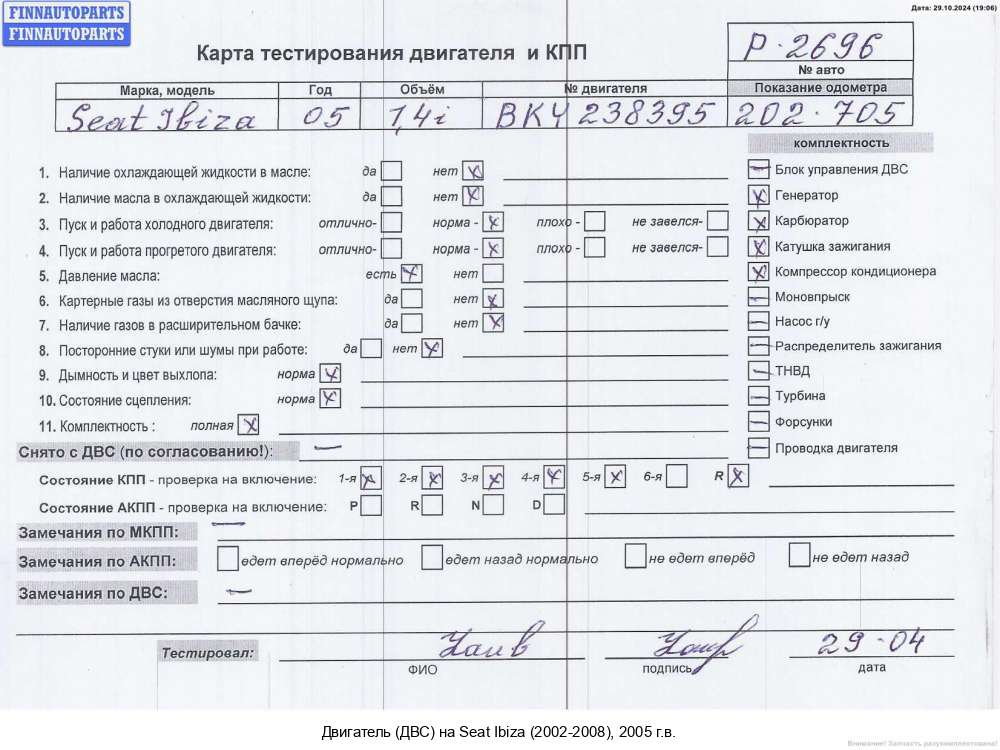 FINNAUTOPARTS
FINNAUTOPARTS
Дата: 29.10.2024 (19:06)
Карта тестирования двигателя и КПП
P-2696
№ авто
Марка, модель Год Объём № двигателя Показание одометра
Seat Ibiza 05 1,4i BKY 238395 202.705
комплектность
1. Наличие охлаждающей жидкости в масле: да нет X
2. Наличие масла в охлаждающей жидкости: да нет X
3. Пуск и работа холодного двигателя: отлично- норма - X плохо - не завелся-
4. Пуск и работа прогретого двигателя: отлично- норма - X плохо - не завелся-
5. Давление масла: есть X нет
6. Картерные газы из отверстия масляного щупа: да нет X
7. Наличие газов в расширительном бачке: да нет X
8. Посторонние стуки или шумы при работе: да нет X
9. Дымность и цвет выхлопа: норма X
10. Состояние сцепления: норма X
11. Комплектность : полная X
— Блок управления ДВС
X Генератор
X Карбюратор
X Катушка зажигания
X Компрессор кондиционера
— Моновпрыск
— Насос г/у
— Распределитель зажигания
— ТНВД
— Турбина
— Форсунки
— Проводка двигателя
Снято с ДВС (по согласованию!): —
Состояние КПП - проверка на включение: 1-я X 2-я X 3-я X 4-я X 5-я X 6-я R X
Состояние АКПП - проверка на включение: P R N D
Замечания по МКПП: —
Замечания по АКПП: едет вперёд нормально едет назад нормально не едет вперёд не едет назад
Замечания по ДВС: —
Тестировал: 29-04
ФИО подпись дата
Двигатель (ДВС) на Seat Ibiza (2002-2008), 2005 г.в.
Внимание! Запчасть разукомплектована!